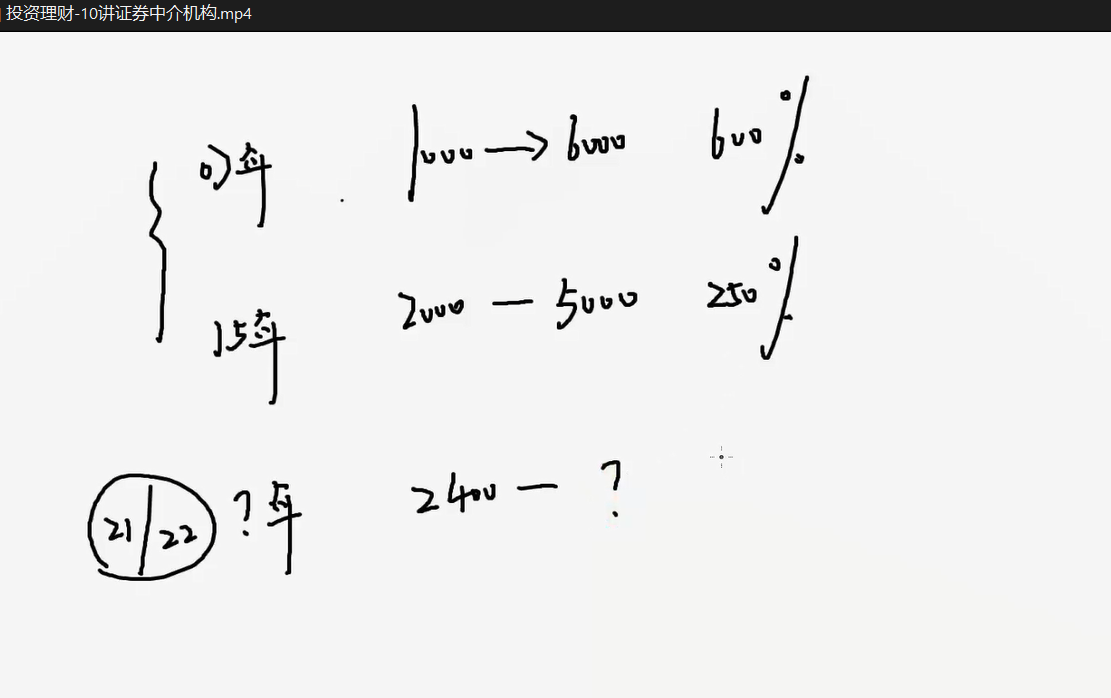 投资理财-10讲证券中介机构.mp4
07年 1000→6000 600%
15年 2000－5000 250%
21/22 ?年 2400－?